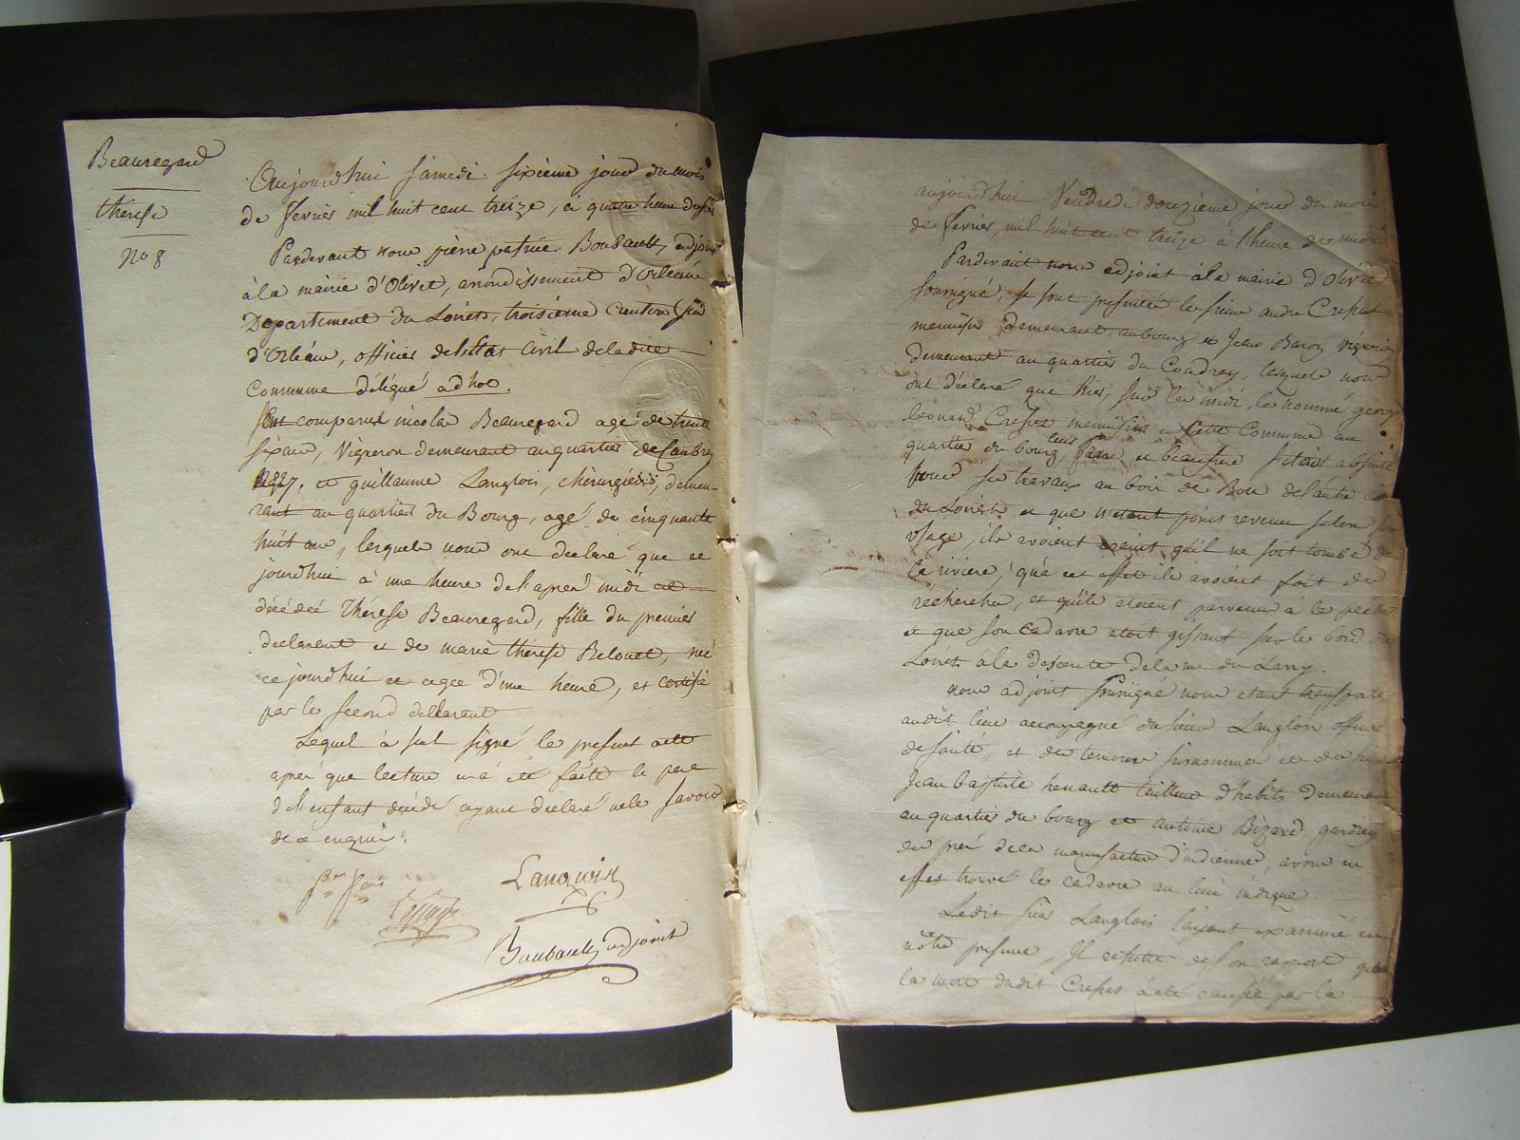 Beauregard
thérèse
N° 8
Aujourdhui samedi sixième jour du mois
de fevrier mil huit cent treize, à quatre heure
Pardevant nous pierre Boubault, adjoint
à la mairie d'Olivet, arrondissement d'Orléans
Departement du Loiret, troisième Canton Sud
d'Orléans, officier de l'état Civil de la dite
Commune délégué ad hoc.
Est comparu nicolas Beauregard agé de trente
six ans, Vigneron demeurant au quartier de
et guillaume Langlois, chirurgien, demeu-
rant au quartier du Bourg, agé de cinquante
huit ans, lesquels nous ont declaré que ce
jourdhui à une heure de l'apres midi est
décédée Thérèse Beauregard, fille du premier
declarant et de marie thérèse Belouet, née
ce jourdhui et agée d'une heure, et certifié
par le second declarant
Lequel à seul signé le present acte
aprés que lecture en à été faite le pere
de l'enfant décédé ayant déclaré ne le savoir
de ce enquis.
Langlois
Boubault adjoint
aujourdhui Vendredi douzieme jour du mois
de fevrier, mil huit cent treize à heure de midi
Pardevant nous adjoint à la mairie d'Olivet
soussigné, se sont presentés les sieurs andre Crespin
menuisier demeurant au bourg et Jean Baron vigneron
demeurant au quartier du Coudray, lesquels nous
ont déclaré que hier, sur les midi, le nommé george
léonard Crespin menuisier en cette Commune au
quartier du bourg, leur frere et beaufrere s'étoit absenté
pour ses travaux au bois de
du Loiret et que n'etant point revenu selon son
usage, ils avoient craint qu'il ne soit tombé dans
la riviere, qu'a cet effet ils avoient fait des
recherches, et qu'ils etoient parvenus à le pecher
et que son cadavre etoit gissant sur le bord du
Loiret à la descente de la rue du
nous adjoint soussigné nous etant transporté
audit lieu accompagné du sieur Langlois officier
de santé, et des temoins susnommés et des sieurs
Jean baptiste henault tailleur d'habits demeurant
au quartier du bourg et antoine Bizard gardien
du pré de la manufacture d'indienne, avons en
effet trouvé le cadavre au lieu indiqué
Ledit sieur Langlois l'ayant examiné en
nôtre presence, Il resulte de son raport que
la mort dudit Crespin à été causée par la